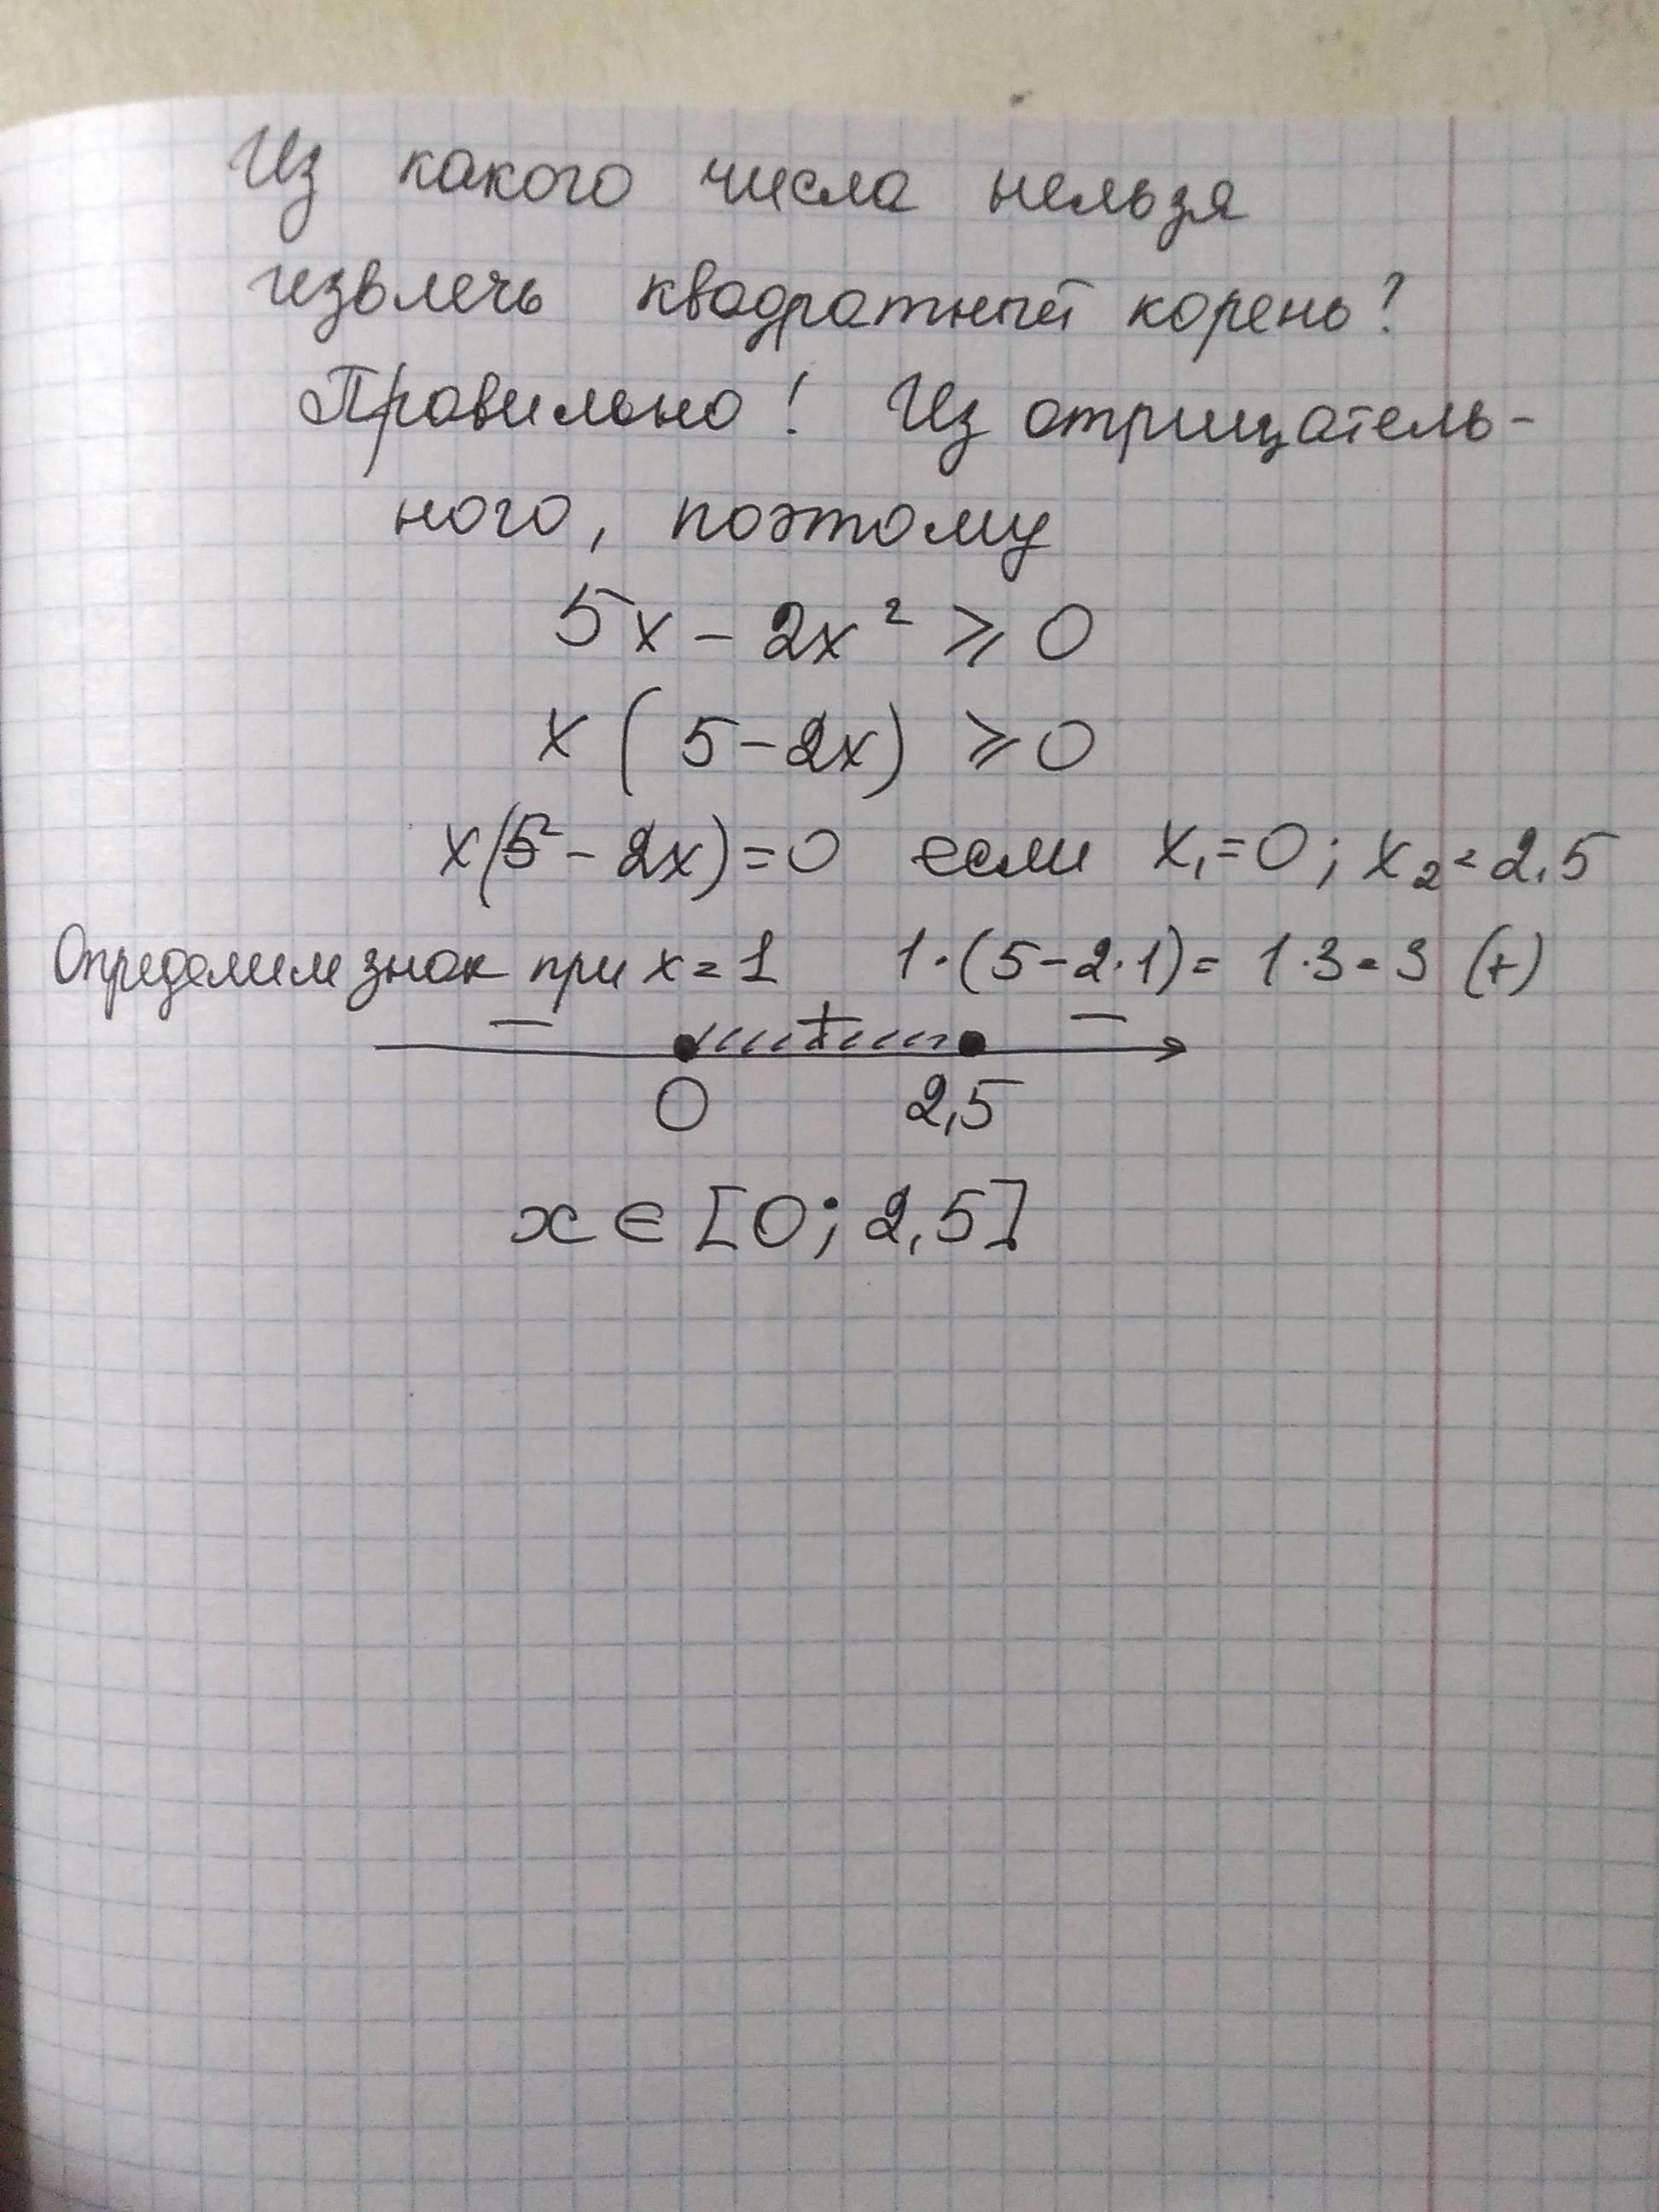 Из какого числа нельзя
извлечь квадратный корень?
Правильно! Из отрицатель-
ного, поэтому
5x - 2x² ⩾ 0
x (5 - 2x) ⩾ 0
x(5 - 2x) = 0 если x₁ = 0; x₂ = 2,5
Определим знак при x = 1 1·(5 - 2·1) = 1·3 = 3 (+)
− + −
0 2,5
x ∈ [0; 2,5]